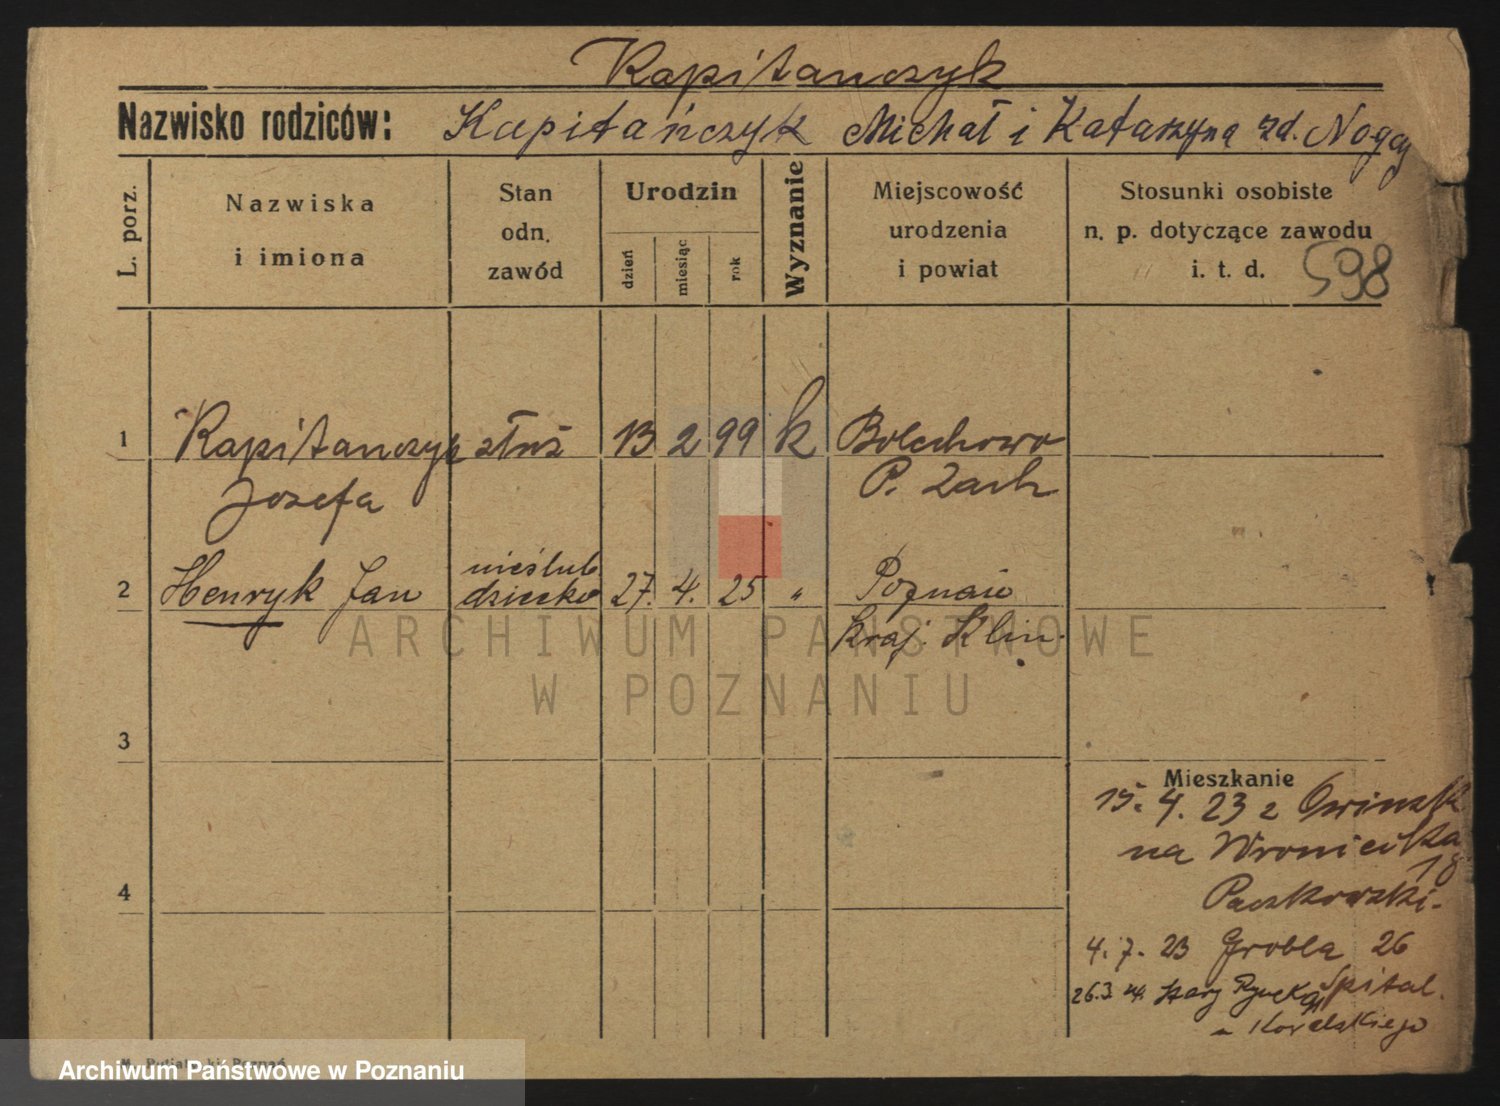 Kapitanczyk
Nazwisko rodziców: Kapitańczyk Michał i Katarzyna zd. Nogaj
L. porz.
Nazwiska
i imiona
Stan
odn.
zawód
Urodzin
dzień
miesiąc
rok
Wyznanie
Miejscowość
urodzenia
i powiat
Stosunki osobiste
n. p. dotyczące zawodu
i. t. d.
598
1 Kapitanczyk służ 13 2 99 k Bolechowo
Jozefa P. Zach
nieślub.
2 Henryk Jan dziecko 27. 4. 25 " Poznań
kraj. Klin.
ARCHIWUM PAŃSTWOWE
W POZNANIU
3
Mieszkanie
15. 4. 23 z Owinsk
na Wroniecka
18
Paczkowski.
4
4. 7. 23 Grobla 26
Spital.
26.3. 24. Stary Rynek
Kowalskiego
Poznań
Archiwum Państwowe w Poznaniu